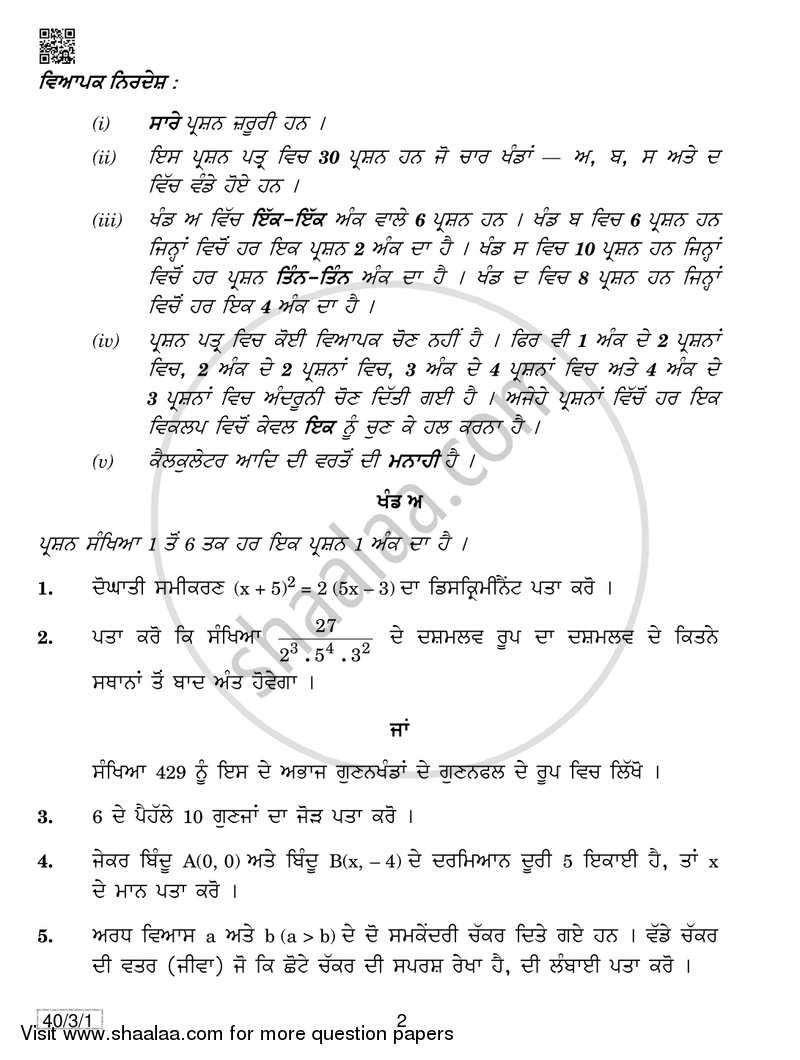 ਵਿਆਪਕ ਨਿਰਦੇਸ਼ :
(i) ਸਾਰੇ ਪ੍ਰਸ਼ਨ ਜ਼ਰੂਰੀ ਹਨ ।
(ii) ਇਸ ਪ੍ਰਸ਼ਨ ਪਤ੍ਰ ਵਿਚ 30 ਪ੍ਰਸ਼ਨ ਹਨ ਜੋ ਚਾਰ ਖੰਡਾਂ — ਅ, ਬ, ਸ ਅਤੇ ਦ
ਵਿੱਚ ਵੰਡੇ ਹੋਏ ਹਨ ।
(iii) ਖੰਡ ਅ ਵਿੱਚ ਇੱਕ-ਇੱਕ ਅੰਕ ਵਾਲੇ 6 ਪ੍ਰਸ਼ਨ ਹਨ । ਖੰਡ ਬ ਵਿਚ 6 ਪ੍ਰਸ਼ਨ ਹਨ
ਜਿਨ੍ਹਾਂ ਵਿਚੋਂ ਹਰ ਇਕ ਪ੍ਰਸ਼ਨ 2 ਅੰਕ ਦਾ ਹੈ । ਖੰਡ ਸ ਵਿਚ 10 ਪ੍ਰਸ਼ਨ ਹਨ ਜਿਨ੍ਹਾਂ
ਵਿਚੋਂ ਹਰ ਪ੍ਰਸ਼ਨ ਤਿੰਨ-ਤਿੰਨ ਅੰਕ ਦਾ ਹੈ । ਖੰਡ ਦ ਵਿਚ 8 ਪ੍ਰਸ਼ਨ ਹਨ ਜਿਨ੍ਹਾਂ
ਵਿਚੋਂ ਹਰ ਇਕ 4 ਅੰਕ ਦਾ ਹੈ ।
(iv) ਪ੍ਰਸ਼ਨ ਪਤ੍ਰ ਵਿਚ ਕੋਈ ਵਿਆਪਕ ਚੋਣ ਨਹੀਂ ਹੈ । ਫਿਰ ਵੀ 1 ਅੰਕ ਦੇ 2 ਪ੍ਰਸ਼ਨਾਂ
ਵਿਚ, 2 ਅੰਕ ਦੇ 2 ਪ੍ਰਸ਼ਨਾਂ ਵਿਚ, 3 ਅੰਕ ਦੇ 4 ਪ੍ਰਸ਼ਨਾਂ ਵਿਚ ਅਤੇ 4 ਅੰਕ ਦੇ
3 ਪ੍ਰਸ਼ਨਾਂ ਵਿਚ ਅੰਦਰੂਨੀ ਚੋਣ ਦਿੱਤੀ ਗਈ ਹੈ । ਅਜੇਹੇ ਪ੍ਰਸ਼ਨਾਂ ਵਿੱਚੋਂ ਹਰ ਇਕ
ਵਿਕਲਪ ਵਿਚੋਂ ਕੇਵਲ ਇਕ ਨੂੰ ਚੁਣ ਕੇ ਹਲ ਕਰਨਾ ਹੈ ।
(v) ਕੈਲਕੁਲੇਟਰ ਆਦਿ ਦੀ ਵਰਤੋਂ ਦੀ ਮਨਾਹੀ ਹੈ ।
ਖੰਡ ਅ
ਪ੍ਰਸ਼ਨ ਸੰਖਿਆ 1 ਤੋਂ 6 ਤਕ ਹਰ ਇਕ ਪ੍ਰਸ਼ਨ 1 ਅੰਕ ਦਾ ਹੈ ।
1. ਦੋਘਾਤੀ ਸਮੀਕਰਣ (x + 5)² = 2 (5x – 3) ਦਾ ਡਿਸਕ੍ਰਿਮੀਨੈਂਟ ਪਤਾ ਕਰੋ ।
2. ਪਤਾ ਕਰੋ ਕਿ ਸੰਖਿਆ 27 / (2³ . 5⁴ . 3²) ਦੇ ਦਸ਼ਮਲਵ ਰੂਪ ਦਾ ਦਸ਼ਮਲਵ ਦੇ ਕਿਤਨੇ
ਸਥਾਨਾਂ ਤੋਂ ਬਾਦ ਅੰਤ ਹੋਵੇਗਾ ।
ਜਾਂ
ਸੰਖਿਆ 429 ਨੂੰ ਇਸ ਦੇ ਅਭਾਜ ਗੁਣਨਖੰਡਾਂ ਦੇ ਗੁਣਨਫਲ ਦੇ ਰੂਪ ਵਿਚ ਲਿੱਖੋ ।
3. 6 ਦੇ ਪੈਹੱਲੇ 10 ਗੁਣਜਾਂ ਦਾ ਜੋੜ ਪਤਾ ਕਰੋ ।
4. ਜੇਕਰ ਬਿੰਦੂ A(0, 0) ਅਤੇ ਬਿੰਦੂ B(x, – 4) ਦੇ ਦਰਮਿਆਨ ਦੂਰੀ 5 ਇਕਾਈ ਹੈ, ਤਾਂ x
ਦੇ ਮਾਨ ਪਤਾ ਕਰੋ ।
5. ਅਰਧ ਵਿਆਸ a ਅਤੇ b (a > b) ਦੇ ਦੋ ਸਮਕੇਂਦਰੀ ਚੱਕਰ ਦਿਤੇ ਗਏ ਹਨ । ਵੱਡੇ ਚੱਕਰ
ਦੀ ਵਤਰ (ਜੀਵਾ) ਜੋ ਕਿ ਛੋਟੇ ਚੱਕਰ ਦੀ ਸਪਰਸ਼ ਰੇਖਾ ਹੈ, ਦੀ ਲੰਬਾਈ ਪਤਾ ਕਰੋ ।
shaalaa.com
40/3/1 2
Visit www.shaalaa.com for more question papers